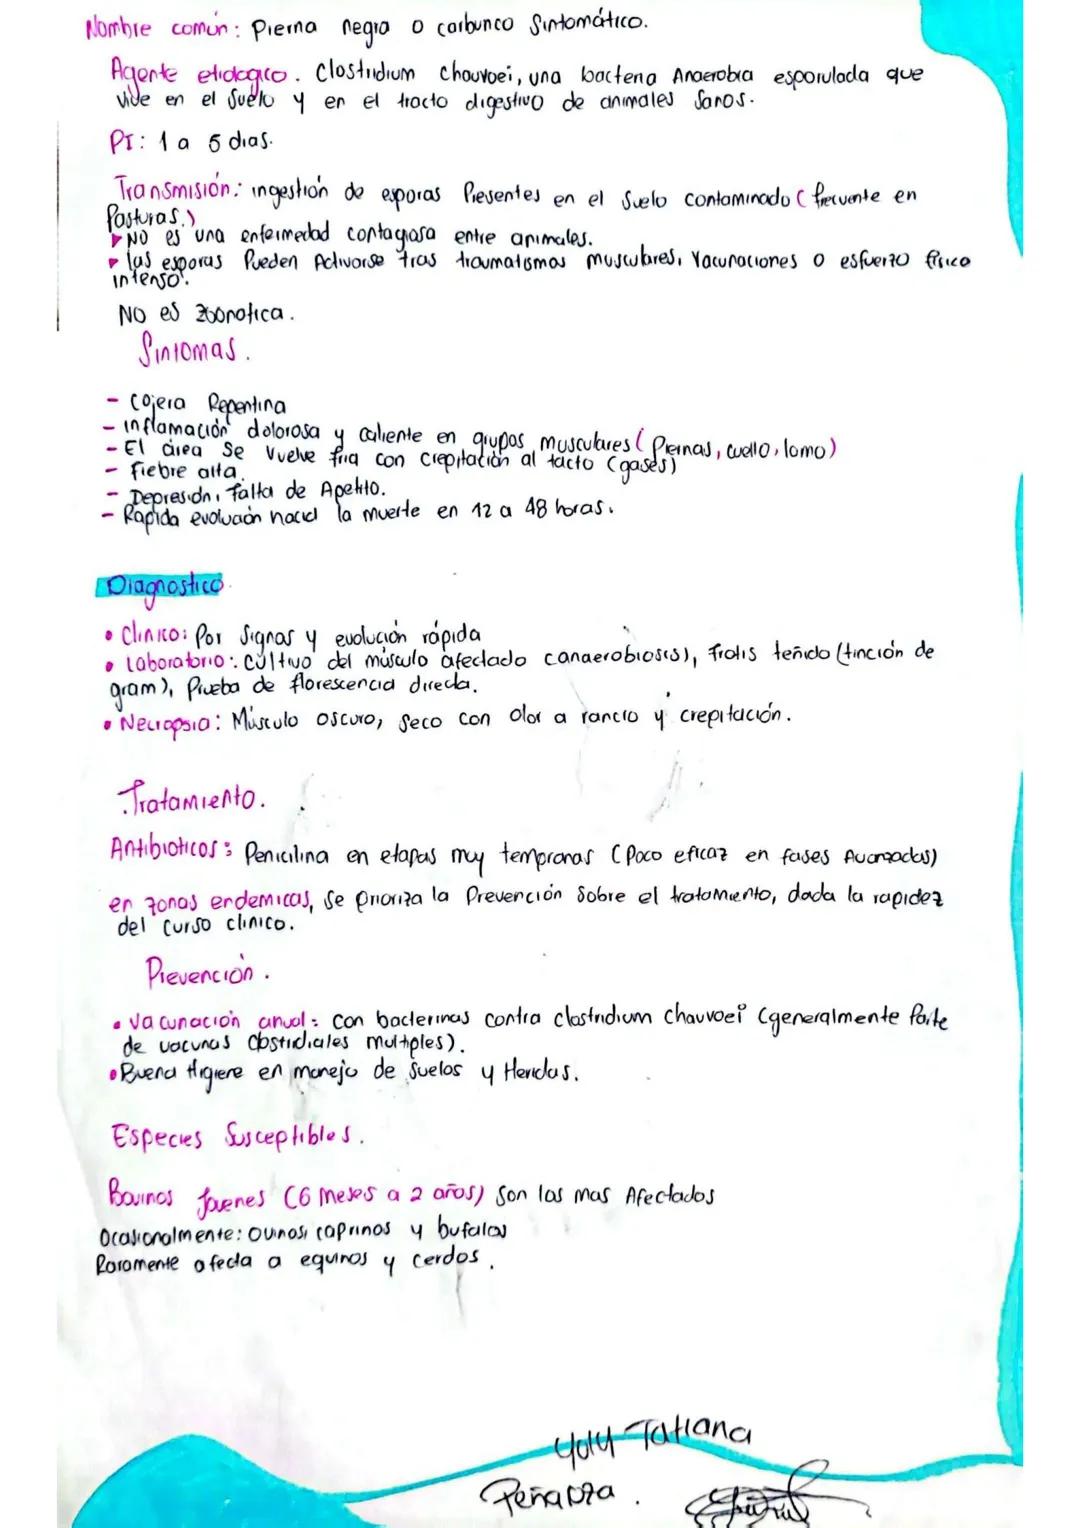 Nombre común: Pierna negra o carbunco Sintomático.
Agente etiologico. Clostridium chauvoei, una bacteria Anaerobia esporulada que
vive en el suelo y en el tracto digestivo de animales Sanos.
PI: 1 a 5 dias.
Transmisión: ingestión de esporas Presentes en el suelo contaminado ( frecuente en
Pasturas.)
NO es una enfermedad contagiosa entre animales.
las esporas Pueden Activarse tras traumatismos musculares, Vacunaciones o esfuerzo físico
intenso.
NO es zoonotica.
Sintomas.
- Cojera Repentina
- inflamación dolorosa y caliente en grupos musculares ( Piernas, cuello, lomo)
- El área Se Vuelve fria con crepitación al tacto (gases)
- Fiebre alta.
- Depresión, falta de Apetito.
- Rapida evolución hacia la muerte en 12 a 48 horas.
Diagnostico.
• Clinico: Por Signos y evolución rápida
• Laboratorio: cultivo del músculo afectado canaerobiosis), frotis teñido (tinción de
gram), Prueba de florescencia directa.
• Necropsia: Músculo oscuro, seco con olor a rancio y crepitación.
Tratamiento.
Antibioticos: Penicilina en etapas muy tempranas (Poco eficaz en fases Avanzadas)
en zonas endemicas, Se prioriza la Prevención Sobre el tratamiento, dada la rapidez
del curso clinico.
Prevención.
• Vacunación anual: con bacterinas contra clostridium chauvoei (generalmente Parte
de vacunas clostridiales multiples).
• Buena Higiene en manejo de Suelos y Heridas.
Especies Susceptibles.
Bovinos Jovenes (6 meses a 2 años) Son los mas Afectados
Ocasionalmente: Ovinos, caprinos y bufalos
Raramente afecta a equinos y cerdos.
Yuly Tatiana